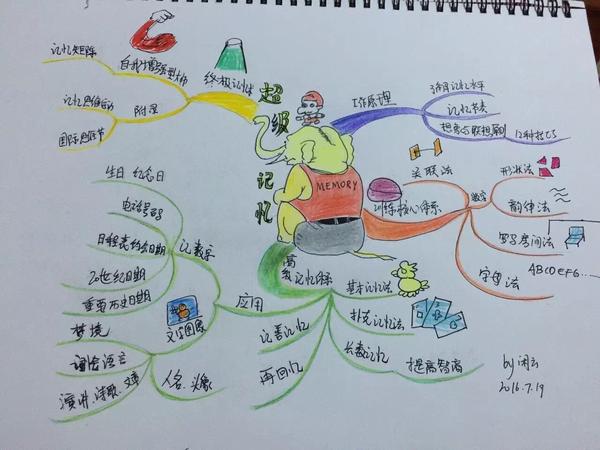 超级记忆
MEMORY
终极记忆
自我增强型
记忆矩阵
附录
记忆思维运动
国际思维节
工作原理
记忆节奏
想象与联想原则
12种技巧
训练核心体系
关联法
数字
形状法
韵律法
罗马房间法
字母法
ABCDEFG...
高级记忆体系
基本记忆法
扑克记忆法
长数记忆
提高智商
记善记忆
再回忆
应用
记数字
生日 纪念日
电话号码
日程表约会日期
20世纪日期
重要历史日期
文字图像
梦境
词会语言
演讲、诗歌、文章
人名、头像
by 闲云
2016.7.19